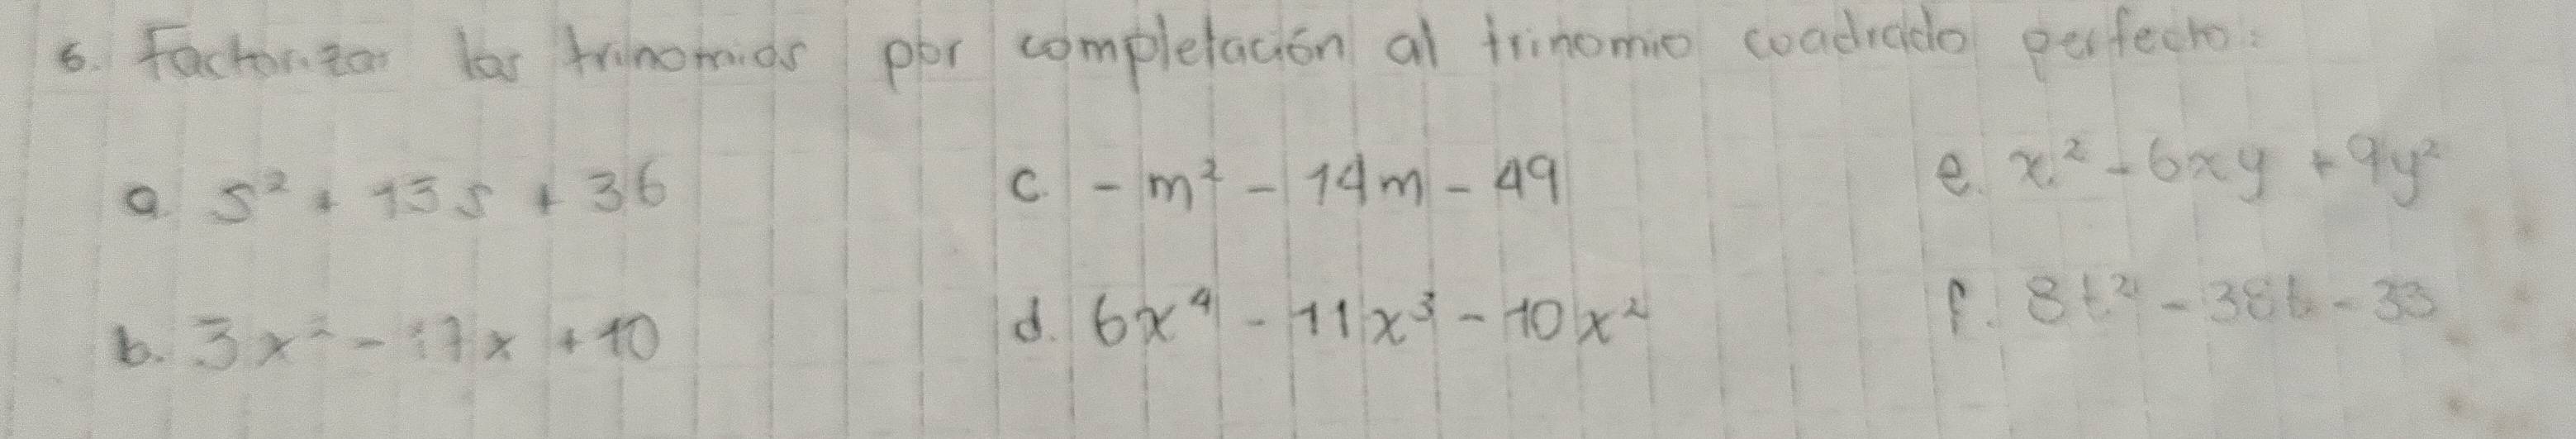 6. Factorizar los trinomios por completación al trinomio coadrado perfecto:
a. s² + 13s + 36 c. - m² - 14m - 49 e. x² - 6xy + 9y²
b. 3x² - 17x + 10 d. 6x⁴ - 11x³ - 10x² f. 8t² - 38t - 33